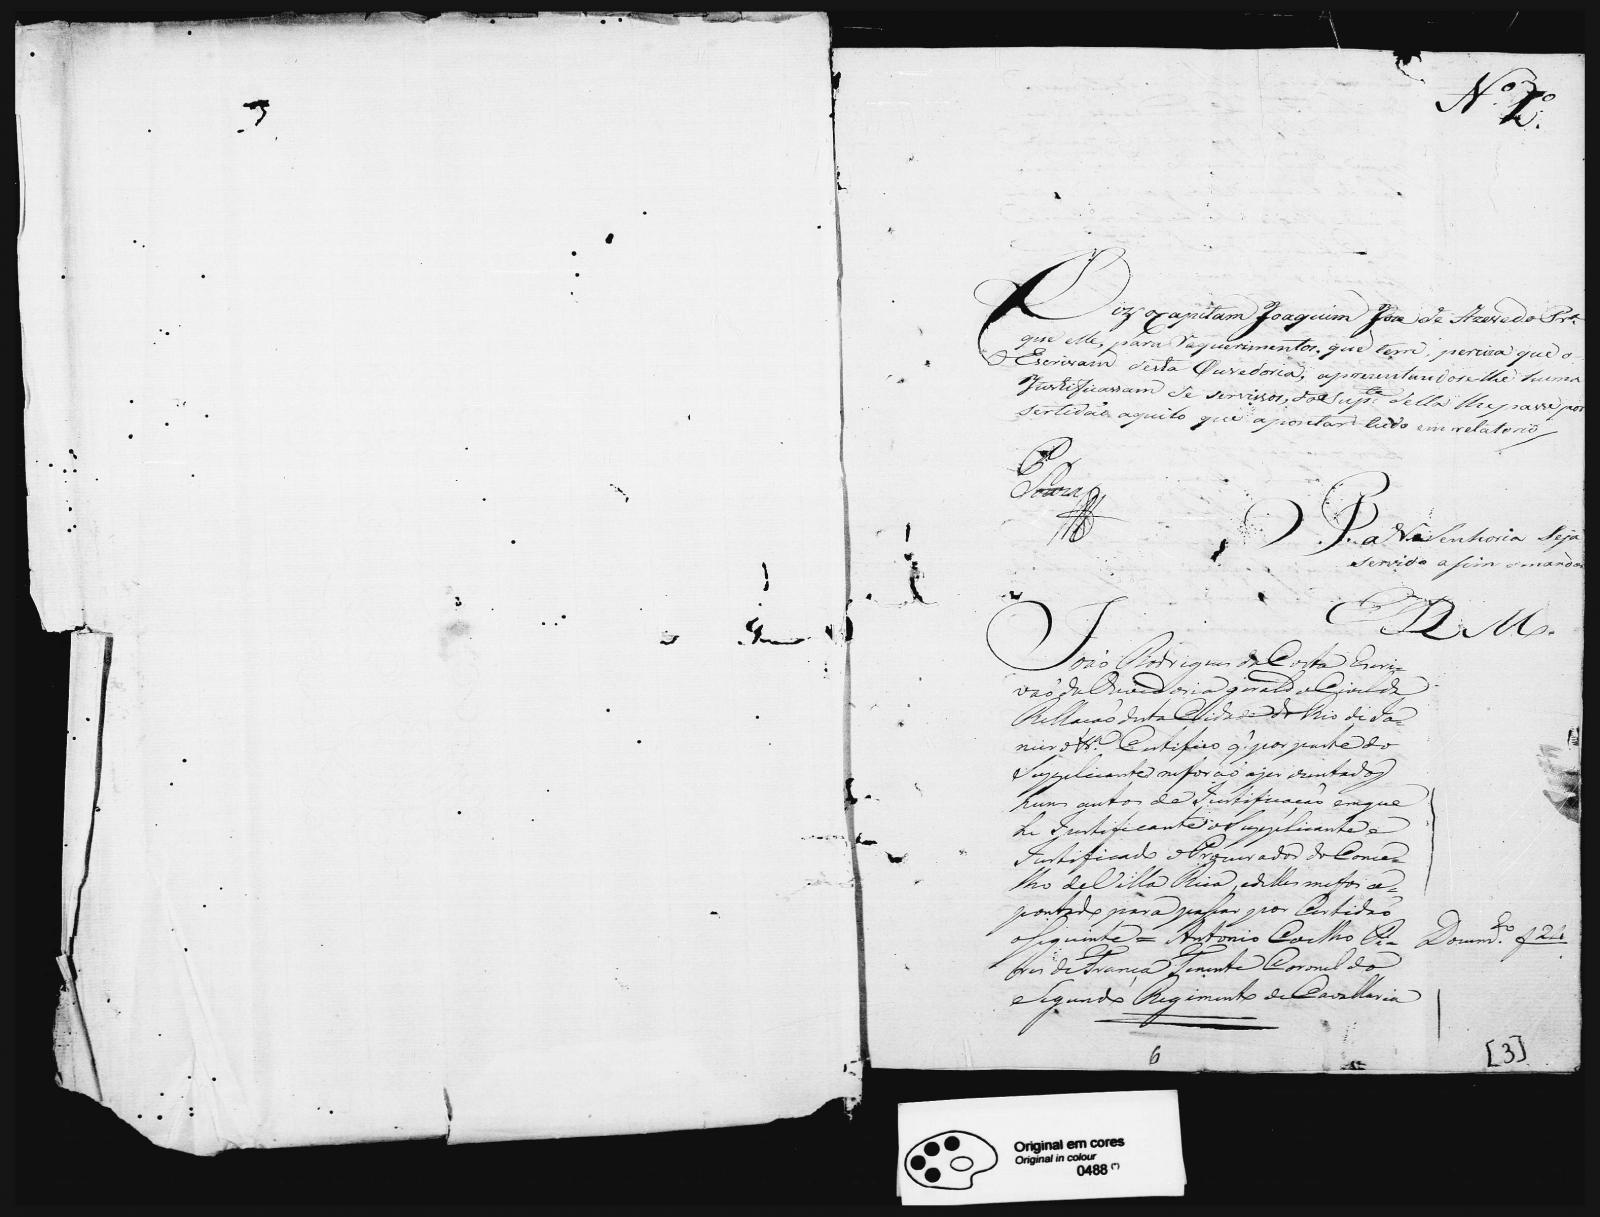 Nº 2º
Diz o Capitam Joaquim Joze de Azevedo Pra.
que elle, para Requerimentos, que tem, perciza que o
Escrivam desta Ouvedoria, aprezentandoselhe huma
Justificassam de servissos, do Supte. della lhe passe por
sertidão aquilo que apontar tudo em relatorio
P
Souza
P. a V. Senhoria Seja
servido asim o mandar
E R M.
João Rodrigues da Costa Escri=
vaõ da Ouvedoria geral do Civel da
Rellacaõ desta Cidade do Rio de Ja=
neiro Certifico q. por parte do
Supplicante me foraõ aprezentados
huns autos de Justificacaõ em que
he Justificante o Supplicante e
Justificado o Procurador do Conce=
lho de Villa Rica, e delles me foi a=
pontado para passar por Certidaõ
o seguinte = Antonio Coelho Pi=
res de França Tenente Coronel do
Segundo Regimento de Cavallaria
Docum.to f 24
6
[3]
Original em cores
Original in colour
0488 (*)